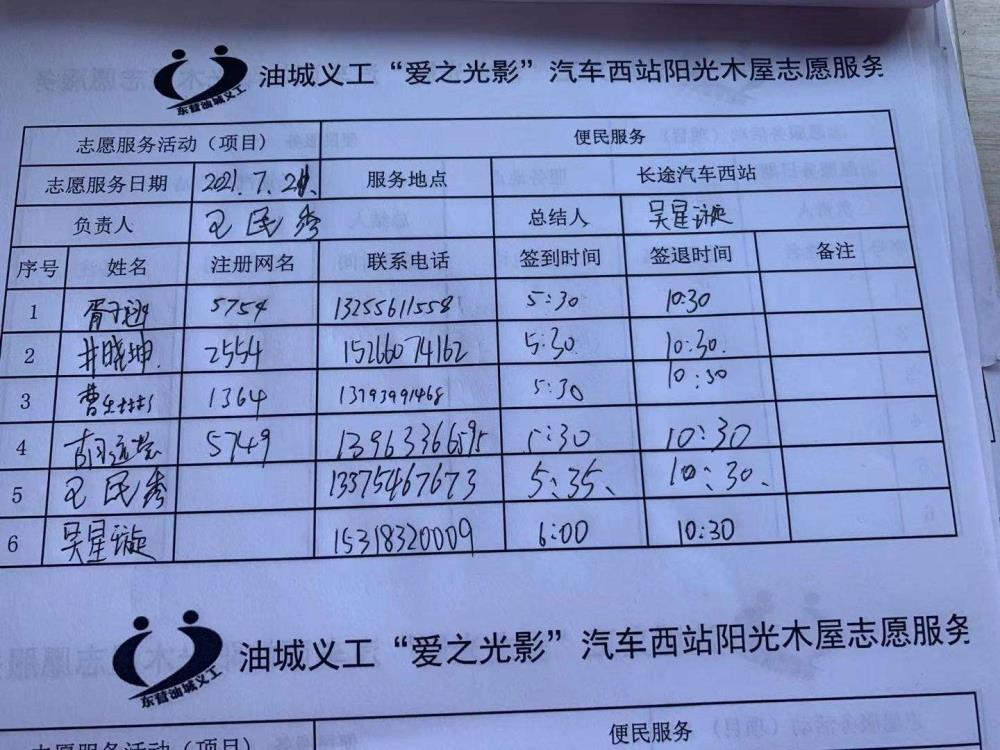 东营油城义工
油城义工“爱之光影”汽车西站阳光木屋志愿服务
志愿服务活动（项目） 便民服务
志愿服务日期 2021.7. 服务地点 长途汽车西站
负责人 王民秀 总结人 吴星璇
序号 姓名 注册网名 联系电话 签到时间 签退时间 备注
1 5754 13255611558 5:30 10:30
2 井晓坤 2554 15266074162 5:30 10:30.
3 曹 1364 13793991468 5:30 10:30
4 胡 5749 13963366595 5:30 10:30
5 王民秀 13375467673 5:35、 10:30、
6 吴星璇 15318320009 6:00 10:30
东营油城义工
油城义工“爱之光影”汽车西站阳光木屋志愿服务
志愿服务活动（项目） 便民服务